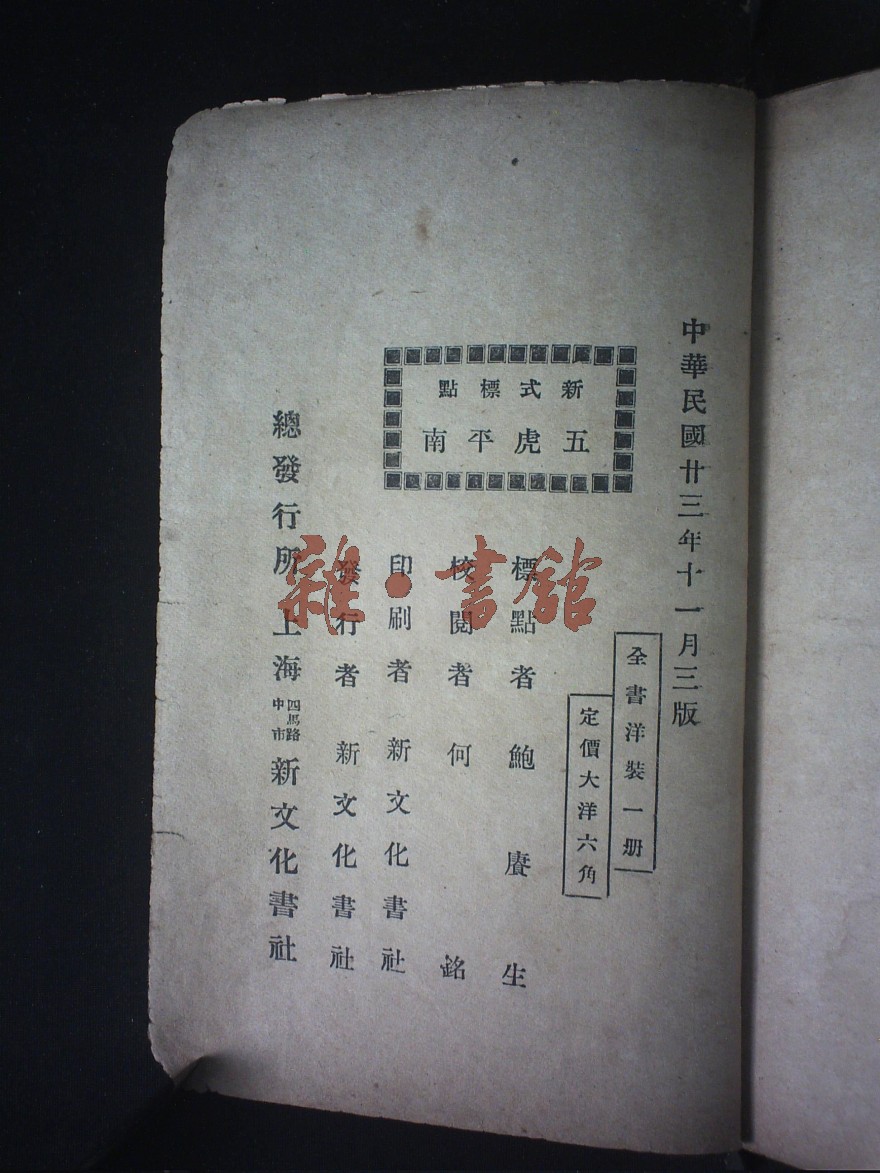 中華民國廿三年十一月三版
全書洋裝一册
定價大洋六角
新式標點
五虎平南
標點者 鮑賡生
校閱者 何銘
印刷者 新文化書社
發行者 新文化書社
總發行所 上海四馬路中市新文化書社
雜·書館